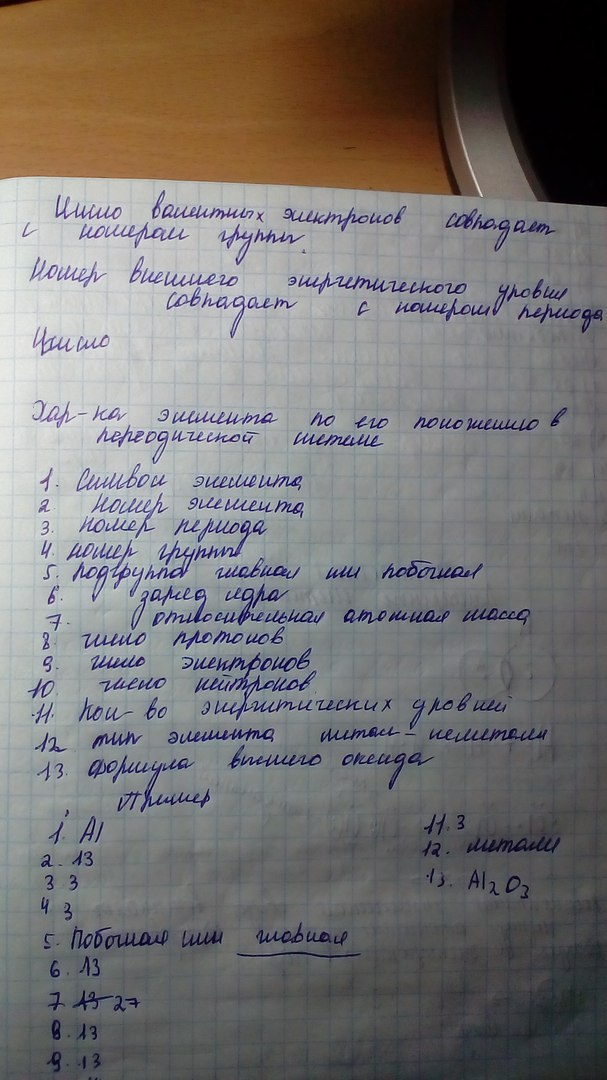 Число валентных электронов совпадает
с номером группы.
Номер внешнего энергетического уровня
совпадает с номером периода
Число
Хар-ка элемента по его положению в
переодической системе
1. Символ элемента
2. Номер элемента
3. номер периода
4. номер группы
5. подгруппа главная или побочная
6. заряд ядра
7. относительная атомная масса
8. число протонов
9. число электронов
10. число нейтронов
11. Кол-во энергитических уровней
12. тип элемента митал-неметалл
13. формула высшего оксида
Пример
1. Al
2. 13
3 3
4 3
5. Побочная или главная
6. 13
7. 13 27
8. 13
9. 13
11. 3
12. металл
13. Al2O3